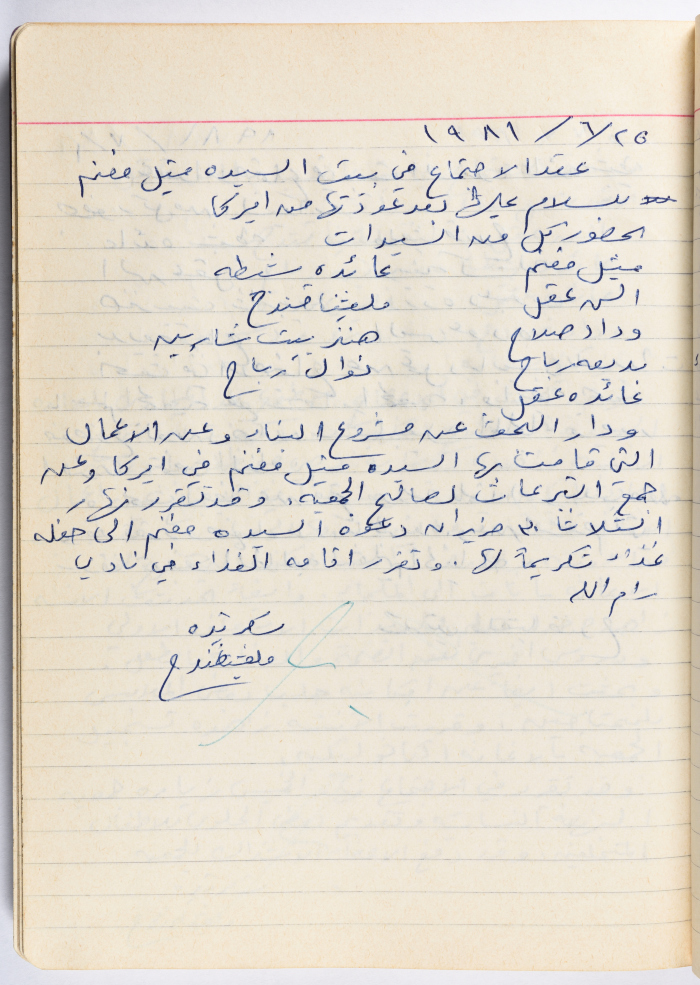 ٢٥/٦/١٩٨١
عقد الاجتماع في بيت السيده متيل مغنم
للسلام عليها بعد عودتها من امركا
الحضور كل من السيدات
متيل مغنم عائده شطه
السن عقل ملفينا قندح
وداد صلاح هنرييت شاريين
بديعه رباح نوال رباح
عائده عقل
ودار البحث عن مشروع البناء وعن الاعمال
التي قامت بها السيده متيل مغنم في امركا وعن
جمع التبرعات لصالح الجمعيه. وقد تقرر نهار
الثلاثا ٣٠ حزيران دعوة السيده مغنم الى حفله
غذاء تكريماً لها. وتقرر اقامه الغذاء في نادي
رام الله
سكرتيره
ملفينا قندح